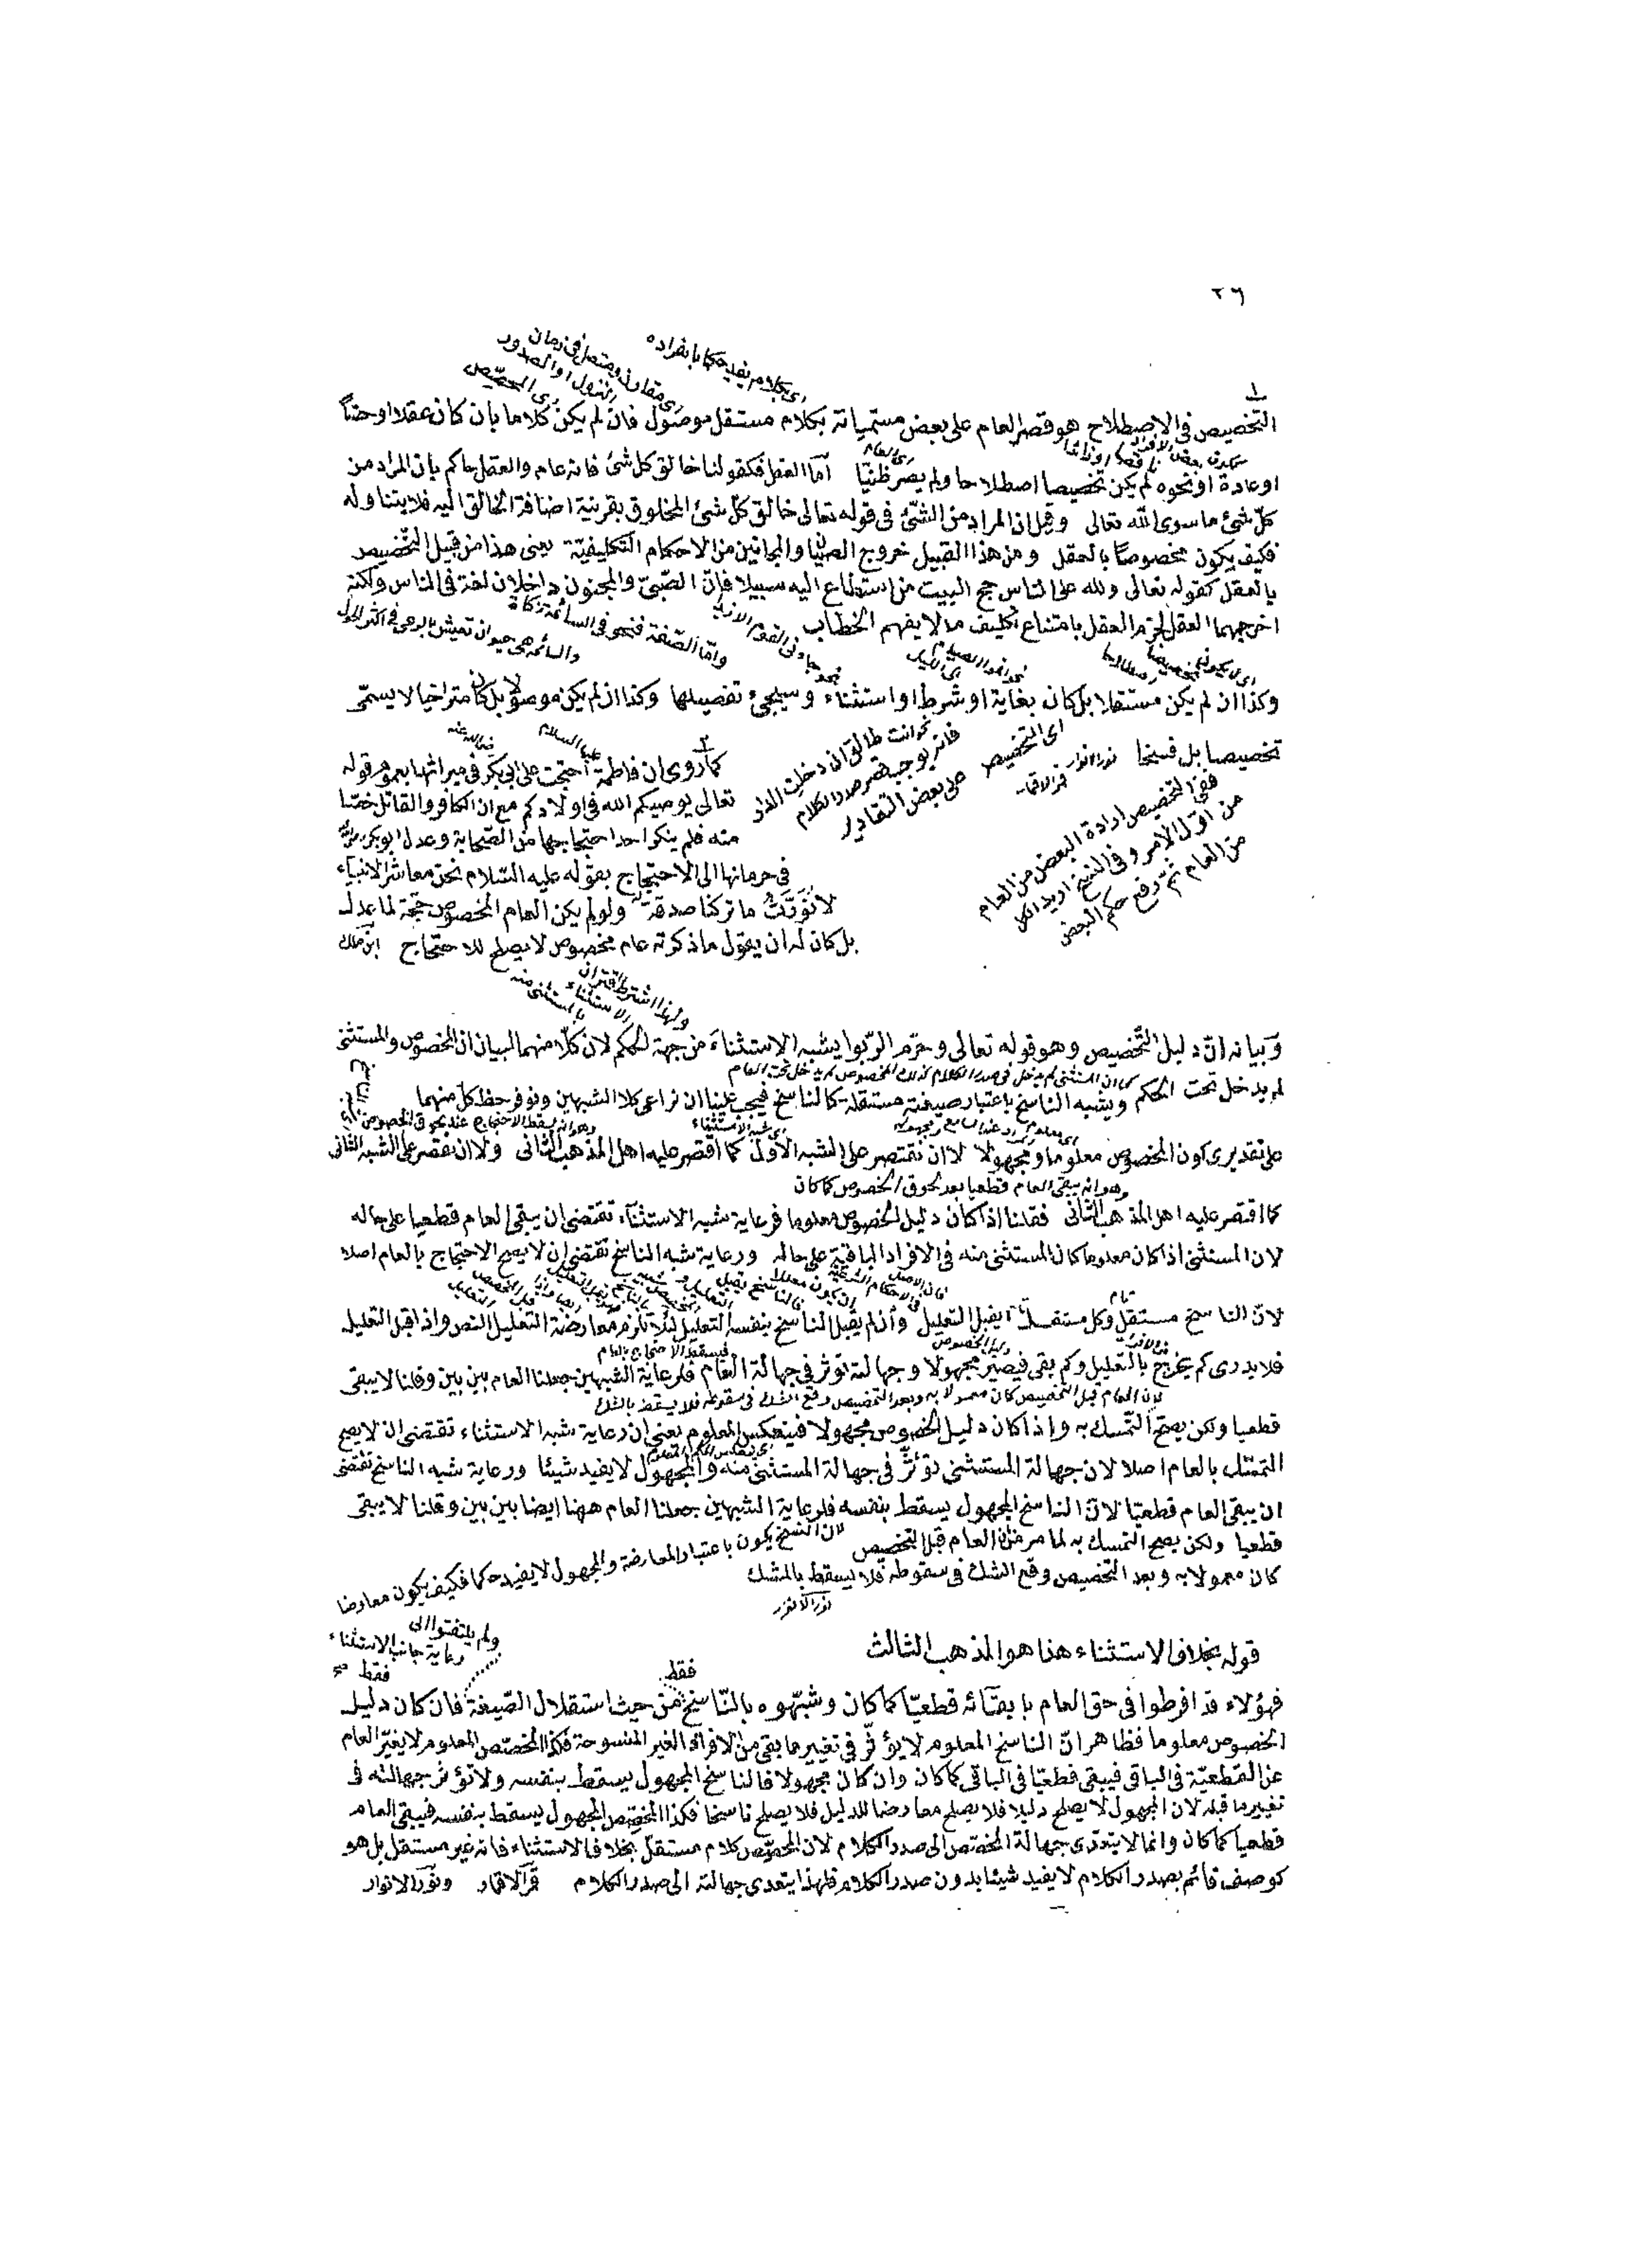 ٢٦
اى بكلام يفيد حكما بانفراده
اى مقارن ومتصل فى زمان
النزول او الصدور
اى المخصّص
١
التخصيص فى الاصطلاح هو قصر العام على بعض مسمياته بكلام مستقل موصول فان لم يكن كلاما بان كان عقلا او حسّاً
اى العام
او عادة او نحوه لم يكن تخصيصا اصطلاحا ولم يصر ظنيّا امّا العقل فكقولنا خالق كل شئ فانه عام والعقل حاكم بان المراد من
كلّ شئ ما سوى الله تعالى وقيل ان المراد من الشّئ فى قوله تعالى خالق كلّ شئ المخلوق بقرينة اضافة الخالق اليه فلا يتناوله
فكيف يكون مخصوصاً بالعقل ومن هذا القبيل خروج الصبيان والمجانين من الاحكام التكليفيّة يعنى هذا من قبيل التخصيص
بالعقل كقوله تعالى ولله على الناس حج البيت من استطاع اليه سبيلا فانّ الصّبىّ والمجنون داخلان لغة فى الناس ولكنه
اخرجهما العقل لجزم العقل بامتناع تكليف من لا يفهم الخطاب
وامّا الصّفة فنحو فى السائمة زكاة
والسائمة هى حيوان تعيش بالرعى فى اكثر الحول
وكذا ان لم يكن مستقلا بل كان بغاية او شرط او استثناء وسيجئ تفصيلها وكذا ان لم يكن موصولا بل كان متراخيا لا يسمّى
تخصيصا بل نسخا نور الانوار قمر الاقمار
اى التخصيص
نحو انت طالق ان دخلت الدار
فانه يوجب قصر صدر الكلام
على بعض التقادير
ففى التخصيص ارادة البعض من العام
من اوّل الامر وفى النسخ اريد الكل
من العام ثمّ رفع حكم البعض
٢
عليها السلام
رضى الله عنه
كما روى ان فاطمة احتجت على ابى بكر فى ميراثها بعموم قوله
تعالى يوصيكم الله فى اولادكم مع ان الكافر والقاتل خصّا
منه فلم ينكر احد احتجاجها من الصّحابة وعدل ابو بكر رضى الله
فى حرمانها الى الاحتجاج بقوله عليه السّلام نحن معاشر الانبياء
لا نُوَرِّثُ ما تركنا صدقة ولو لم يكن العام المخصوص حجّة لما عدل
بل كان له ان يقول ما ذكرته عام مخصوص لا يصلح للاحتجاج ابن ملك
ولهذا اشترط اقتران
الاستثناء
بالمستثنى منه
وبيانه انّ دليل التّخصيص وهو قوله تعالى وحرّم الرّبوا يشبه الاستثناءَ من جهة الحكم لان كلّا منهما لبيان ان المخصوص والمستثنى
كما ان المستثنى لم يدخل فى صدر الكلام كذلك المخصوص لم يدخل تحت العام
لم يدخل تحت الحكم ويشبه الناسخ باعتبار صيغته مستقلة كالناسخ فيجب علينا ان نراعى كلا الشبهين ونوفر حظ كلّ منهما
اى شبه الاستثناء
وهو انه يسقط الاحتجاج عند لحوق الخصوص
على تقديرى كون المخصوص معلوما ومجهولا لا ان نقتصر على الشبه الاوّل كما اقتصر عليه اهل المذهب الثانى ولا ان نقتصر على الشبه الثانى
وهو انه يبقى العام قطعيا بعد لحوق الخصوص كما كان
كما اقتصر عليه اهل المذهب الثانى فقلنا اذا كان دليل الخصوص معلوما فرعاية شبه الاستثناء تقتضى ان يبقى العام قطعيا على حاله
لان المستثنى اذا كان معلوما كان المستثنى منه فى الافراد الباقية على حاله ورعاية شبه الناسخ تقتضى ان لا يصح الاحتجاج بالعام اصلا
فان الاصل
فى الاحكام الشرعية
ان يكون معللا
تام
لانّ الناسخ مستقل وكل مستقل يقبل التعليل وان لم يقبل الناسخ بنفسه التعليل لئلا تلزم معارضة التعليل النص واذا قبل التعليل
دليل الخصوص
فيسقط الاحتجاج بالعام
فلا يدرى كم يخرج بالتعليل وكم بقى فيصير مجهولا وجهالته تؤثر فى جهالة العام فلرعاية الشبهين جعلنا العام بين بين وقلنا لا يبقى
لان العام قبل التخصيص كان معمولا به وبعد التخصيص وقع الشك فى سقوطه فلا يسقط بالشك
قطعيا ولكن يصح التّمسك به واذا كان دليل الخصوص مجهولا فينعكس المعلوم يعنى ان رعاية شبه الاستثناء تقتضى ان لا يصح
التمسّك بالعام اصلا لان جهالة المستثنى تؤثّر فى جهالة المستثنى منه والمجهول لا يفيد شيئا ورعاية شبه الناسخ تقتضى
ان يبقى العام قطعيّا لانّ الناسخ المجهول يسقط بنفسه فلرعاية الشبهين جعلنا العام ههنا ايضا بين بين وقلنا لا يبقى
قطعيا ولكن يصح التمسك به لما مر من ان العام قبل التخصيص
كان معمولا به وبعد التخصيص وقع الشك فى سقوطه فلا يسقط بالشك
لان النسخ يكون باعتبار المعارضة والمجهول لا يفيد حكما فكيف يكون معارضا
قوله بخلاف الاستثناء هذا هو المذهب الثالث
ولم يلتفتوا الى
رعاية جانب الاستثناء
فقط
فقط
فهؤلاء قد افرطوا فى حق العام بابقائه قطعيّا كما كان وشبّهوه بالنّاسخ من حيث استقلال الصّيغة فان كان دليل
الخصوص معلوما فظاهر انّ الناسخ المعلوم لا يؤثّر فى تغيير ما بقى من الافراد الغير المنسوخة فكذا المخصّص المعلوم لا يغيّر العام
عن القطعيّة فى الباقى فيبقى قطعيّا فى الباقى كما كان وان كان مجهولا فالناسخ المجهول يسقط بنفسه ولا تؤثر جهالته فى
تغيير ما قبله لان المجهول لا يصلح دليلا فلا يصلح معارضا للدليل فلا يصلح ناسخا فكذا المخصّص المجهول يسقط بنفسه فيبقى العام
قطعيا كما كان وانما لا يتعدّى جهالة المخصّص الى صدر الكلام لان المخصّص كلام مستقلّ بخلاف الاستثناء فانه غير مستقل بل هو
كوصف قائم بصدر الكلام لا يفيد شيئا بدون صدر الكلام فلهذا يتعدى جهالته الى صدر الكلام قمر الاقمار ونور الانوار